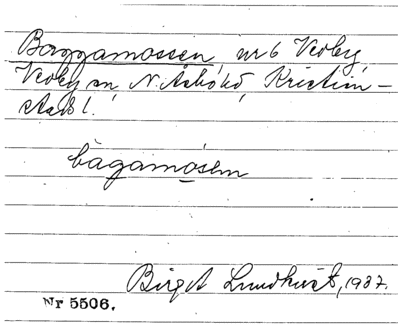 Baggamossen, nr 6 Verby,
Verby sn, N. Åsbo hd, Kristian-
stads l.
bagamósen
Birgit Lundkvist, 1937.
Nr 5506.